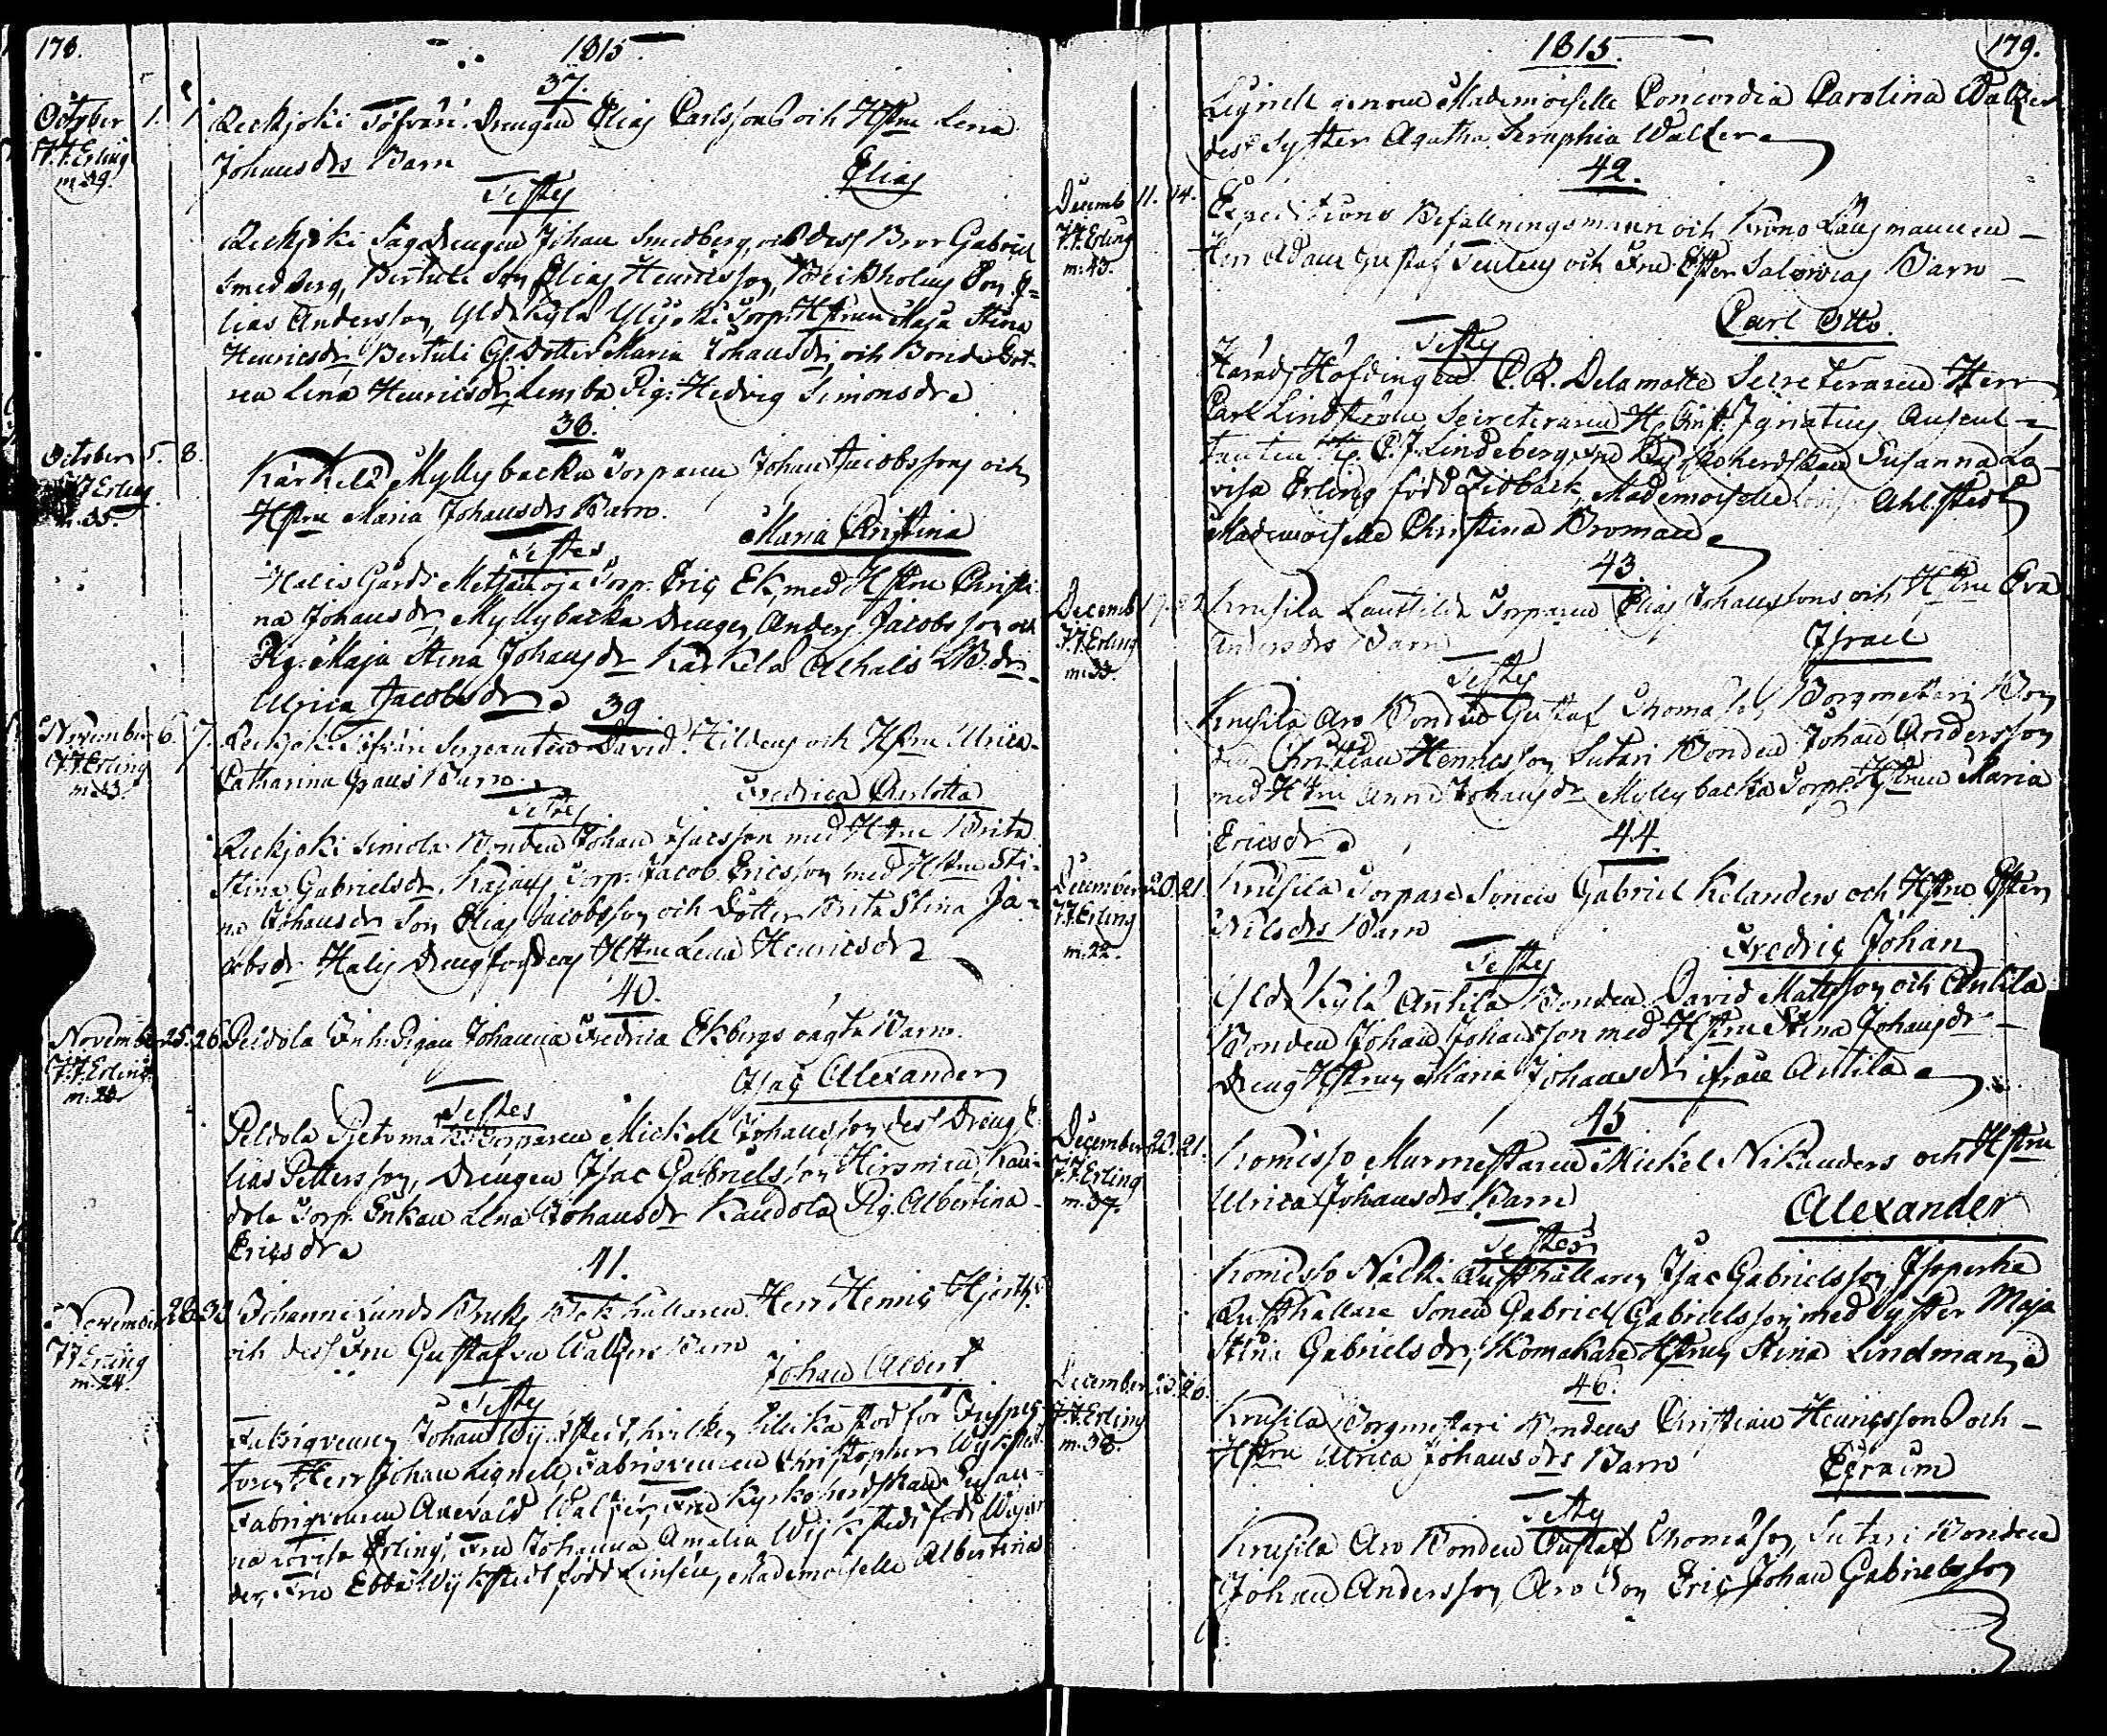 178.
1815
37.
October 1. 1. Reckjoki Tofvari Drengen Elias Carlssons och Hstru Lena
J.J. Erling Johansdrs Barn
m. 29. Elias
Testes
Reckjoki Sagdrengen Johan Smedberg, och dess Bror Gabriel
Smedberg, Bertuli Son Elias Henricsson, Son E-
lias Andersson, Yldkylä Torp. Hstrun Maja Stina
Henricsdr, Bertuli Dotter Maria Johansdr, och Bonde Dot-
ren Lena Henricsdr Lemba Pig. Hedvig Simonsdr
38.
October 5. 8. Kärkelä Myllybacka Torparen Johan Jacobssons och
J.J. Erling Hstru Maria Johansdrs Barn
m. 35. Maria Christina
Testes
Halis Gårds Torp. Eric Ek, med Hstru Christi-
na Johansdr, Myllybacka Drengen Anders Jacobsson och
Pig. Maja Stina Johansdr Kärkelä
Ulrica Jacobsdr
39
November 6. 7. Reckjoki Tofvari Sergeanten David Hildens och Hstru Ulrica
J.J. Erling Catharina Barn
m. 33. Fredrica Charlotta
Testes
Reckjoki Simola Bonden Johan Isacsson med Hstru Brita
Stina Gabrielsdr, Torp. Jacob Ericsson med Hstru Sti-
na Johansdr Son Elias Jacobsson och Dotter Brita Stina Ja-
cobsdr Halis Hstru Lena Henricsdr
40.
November 25. 26. Peldola Inh. Pigan Johanna Fredrica Ekbergs oägta Barn
J.J. Erling
m. Isac Alexander
Testes
Peldola Torparen Mickell Johansson, dess Dreng E-
lias Pettersson, Drengen Isac Gabrielsson
dola Torp. Enkan Lena Johansdr Kandola Pig. Albertina
Ericsdr
41.
November 28. Johannislunds Bruks Herr Henric Hjorth
J.J. Erling och dess Fru Gustafva Waltzers Barn
m. 24. Johan Albert
Testes
Johan Wijkstedt, hvilken tillika stod för Inspec-
toren Herr Johan Lignell, Fabriqveuren Christopher Wijkstedt
Fabriqveuren Walter, Fru Kyrkoherdskan Susan-
na Lovisa Erling, Fru Johanna Amalia Wijkstedt född
der, Fru Ebba Wijkstedt född Linsén, Mademoiselle Albertina
1815.
179.
Lignell genom Mademoiselle Concordia Carolina Waltzer
dess Syster Agatha Seraphia Waltzer
42.
Decemb 11. 14. Expeditions Befallningsmannen och Krono Länsmannen
J.J. Erling Herr Adam Gustaf och Fru Ester Barn
m. 43.
Carl Otto.
Testes
Härads Höfdingen C. R. Delamotte Secreteraren Herr
Carl Lindström, Secreteraren H. Christ. Ignatius Auscul-
tanten H. C. J. Lindeberg, Fru Kyrkoherdskan Susanna Lo-
visa Erling född Zidbäck, Mademoiselle Lovisa Ahlstedt
Mademoiselle Christina Broman
43.
Decemb 17. 22 Krusila Torparen Elias Johanssons och Hstru Eva
J.J. Erling Andersdrs Barn
m. 33. Israel
Testes
Krusila Aro Bonden Gustaf Thomasson, Borgmestari Bon-
den Christian Henricsson Sutari Bonden Johan Andersson
med Hstru Anna Johansdr Myllybacka Torp. Hstrun Maria
Ericsdr
44.
December 20. 21. Krusila Torpare Sonens Gabriel Kelanders och Hstru Ester
J.J. Erling Nilsdrs Barn
m. 22. Fredric Johan
Testes
Yldkylä Antila Bonden David Mattsson och Antila
Bonden Johan Johansson med Hstru Stina Johansdr
Dreng Hstrun Maria Johansdr ifrån Antila
45
December 20. 21. Komisso Murmestaren Mickel Nikanders och Hstru
J.J. Erling Ulrica Johansdrs Barn
m. 37. Alexander
Testes
Komisso Näcki Rusthållaren Isac Gabrielsson, Isoperka
Rusthållare Sonen Gabriel Gabrielsson med Syster Maja
Stina Gabrielsdr, Hstrun Stina Lindman
46.
December 25. 26. Krusila Borgmestari Bondens Christian Henricssons och
J.J. Erling Hstru Ulrica Johansdrs Barn
m. 38. Efraim
Testes
Krusila Aro Bonden Gustaf Thomasson, Sutari Bonden
Johan Andersson, Aro Son Eric Johan Gabrielsson